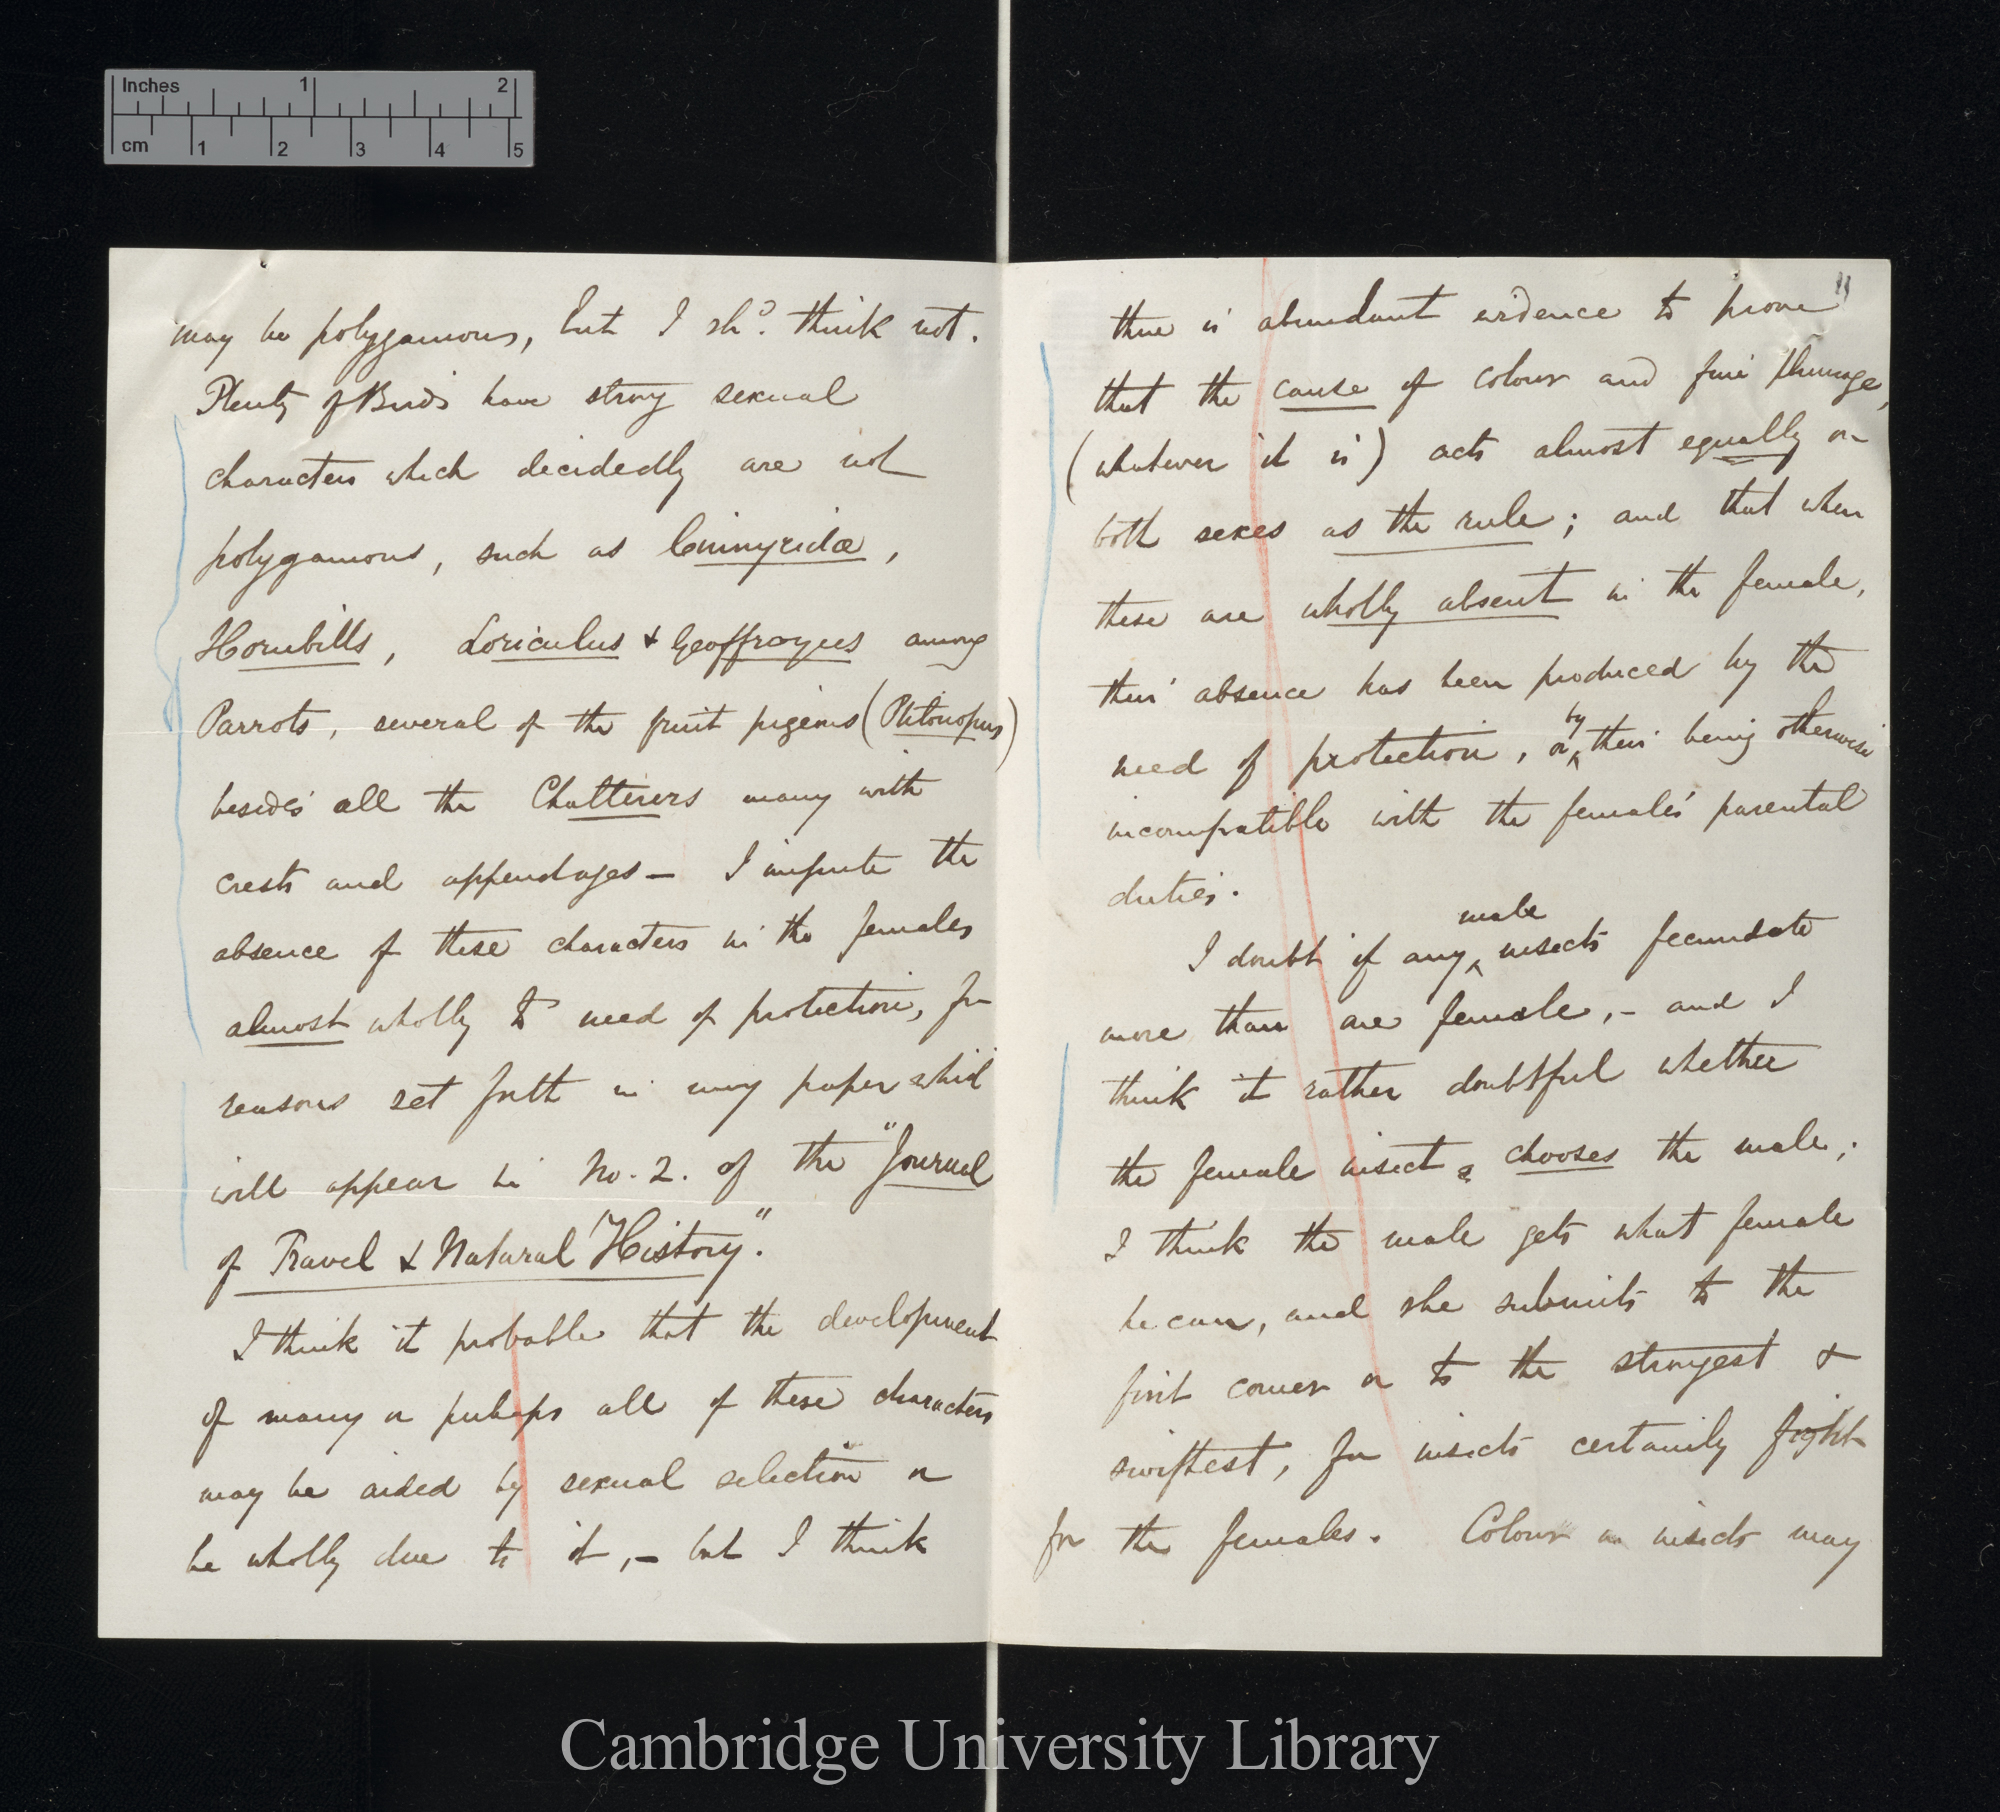 Inches 1 2
cm 1 2 3 4 5
may be polygamous, but I shd. think not.
Plenty of Birds have strong sexual
characters which decidedly are not
polygamous, such as Cinnyridæ,
Hornbills, Loriculus & Geoffroyus among
Parrots, several of the fruit pigeons (Ptilonopus)
besides all the Chatterers many with
crests and appendages – I impute the
absence of these characters in the females
almost wholly to need of protection, for
reasons set forth in my paper which
will appear in No. 2. of the "Journal
of Travel & Natural History".
I think it probable that the development
of many or perhaps all of these characters
may be aided by sexual selection or
be wholly due to it, – but I think
11
there is abundant evidence to prove
that the cause of colour and fine plumage,
(whatever it is) acts almost equally on
both sexes as the rule; and that when
these are wholly absent in the female,
their absence has been produced by the
need of protection, or by their being otherwise
incompatible with the females' parental
duties.
I doubt if any male insects fecundate
more than one female, – and I
think it rather doubtful whether
the female insect chooses the male;
I think the male gets what female
he can, and she submits to the
first comer or to the strongest &
swiftest, for insects certainly fight
for the females. Colour in insects may
Cambridge University Library